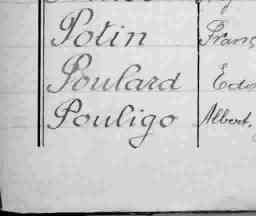 Potin Franç
Poulard Edo
Pouligo Albert.